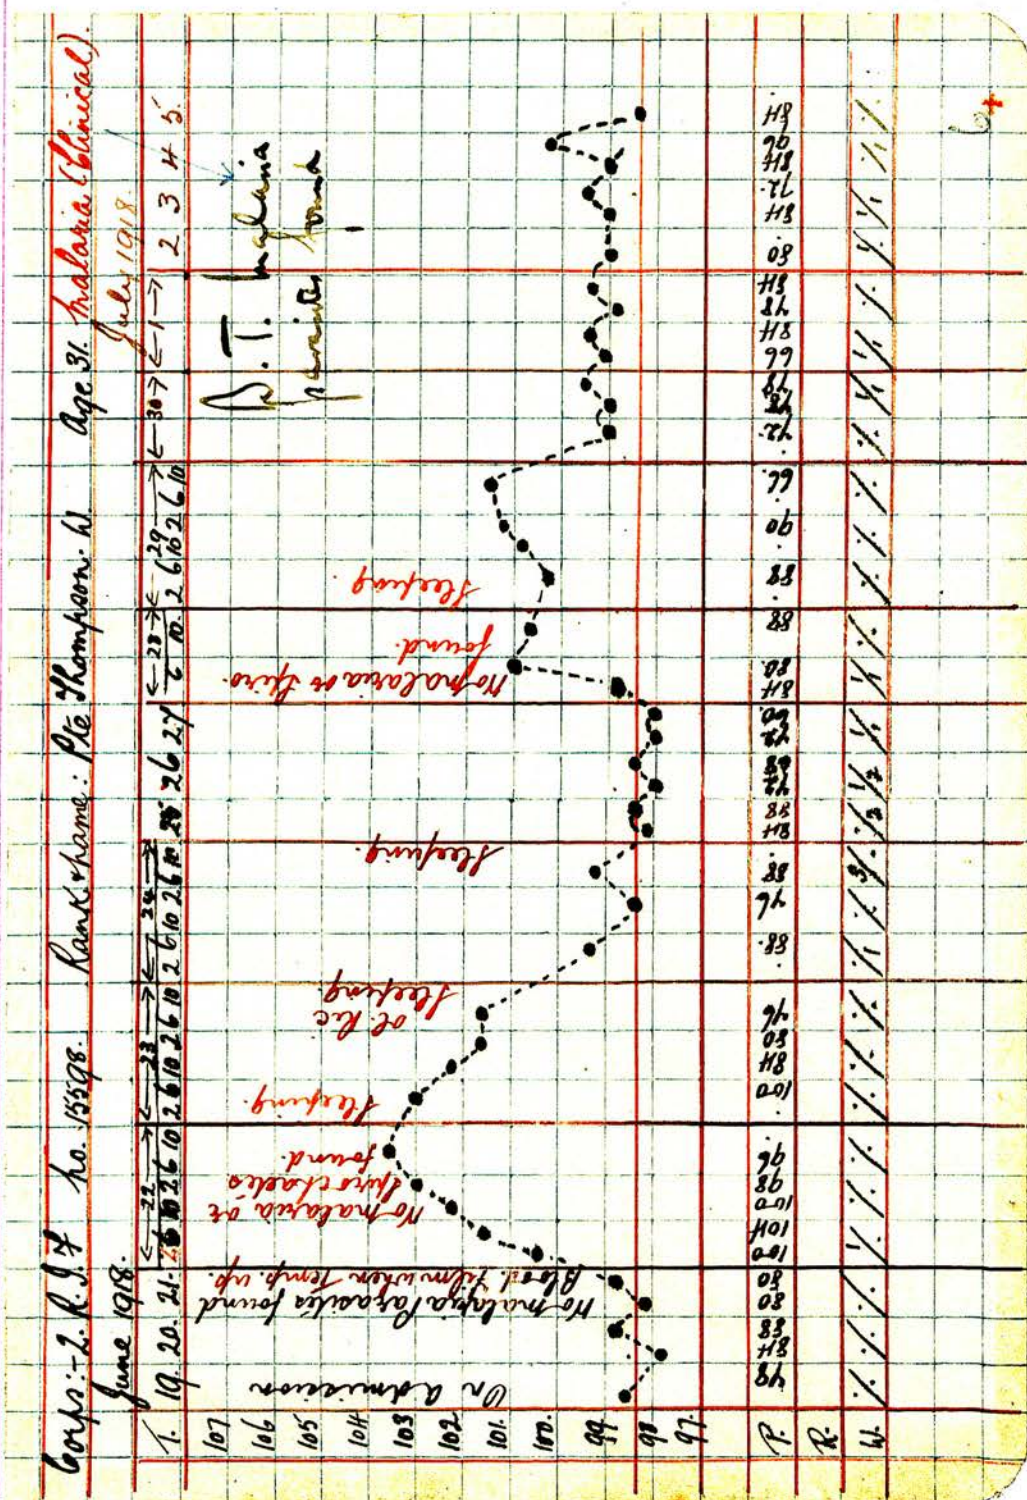 Corps:- 2. R. I. F no. 15598. Rank & name: Pte Thompson. W. Age 31. Malaria (Clinical).
June 1918. July 1918
T. 19. 20. 21. ← 22 → ← 23 → ← 24 → 25 26 27 ← 28 → ← 29 → ← 30 → ← 1 → 2 3 4 5.
6 10 2 6 10 2 6 10 2 6 10 2 6 10 2 6 10 6 10. 2 6 10 2 6 10
107
106
105
104
103
102
101.
100.
99.
98
97.
On admission
No malaria Parasites found
Blood film when temp. up.
No malaria or
Spirochaetes
found.
Sleeping.
Sleeping.
Sleeping.
No malaria or Spiro.
found.
Sleeping
B. T. Malaria
parasites found
P. 84 88 80 80 100 104 100 98 96 . 100 84 80 76 . 88. 76 88 . 84 88 72 68 72 60. 84 80 88 . 88 . 90 . 66. . 72. 78 66 84 78 84 80. 84 72. 84 96 84
R.
W.